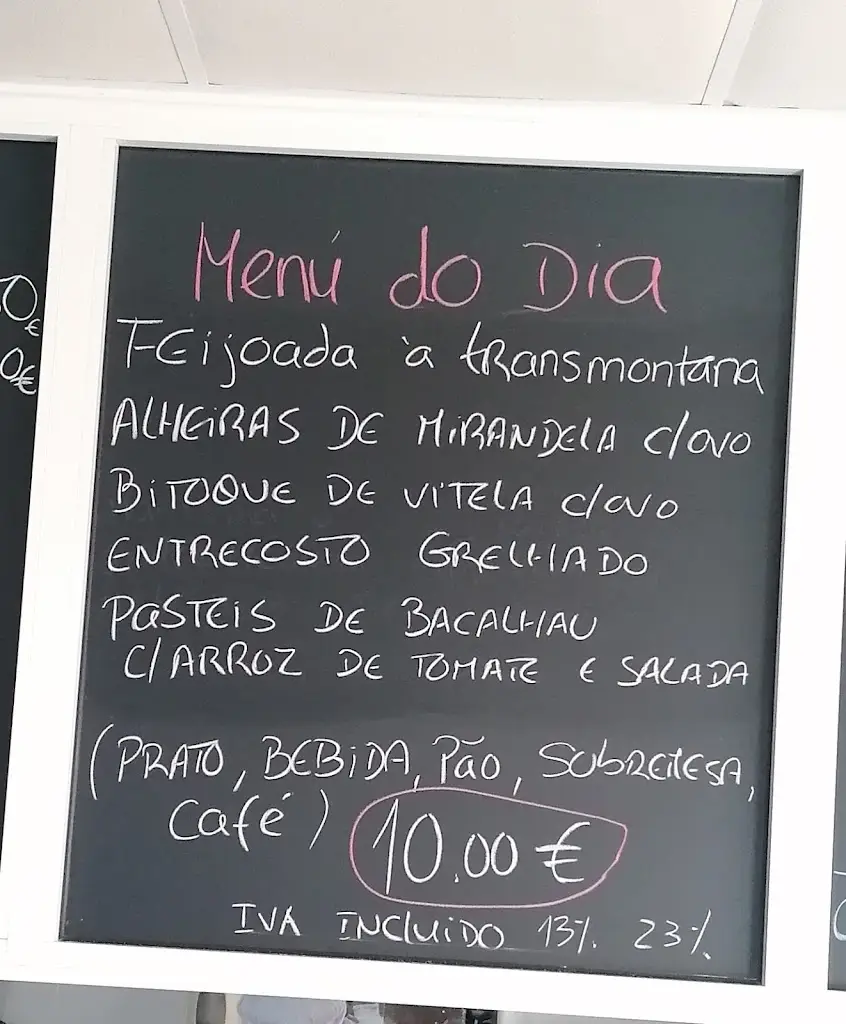 Menú do Dia
Feijoada à transmontana
ALHEIRAS DE MIRANDELA c/ovo
BITOQUE DE VITELA c/ovo
ENTRECOSTO GRELHADO
PASTEIS DE BACALHAU
C/ARROZ DE TOMATE E SALADA
(PRATO, BEBIDA, Pão, SOBREMESA,
Café) 10.00 €
IVA INCLUIDO 13% 23%